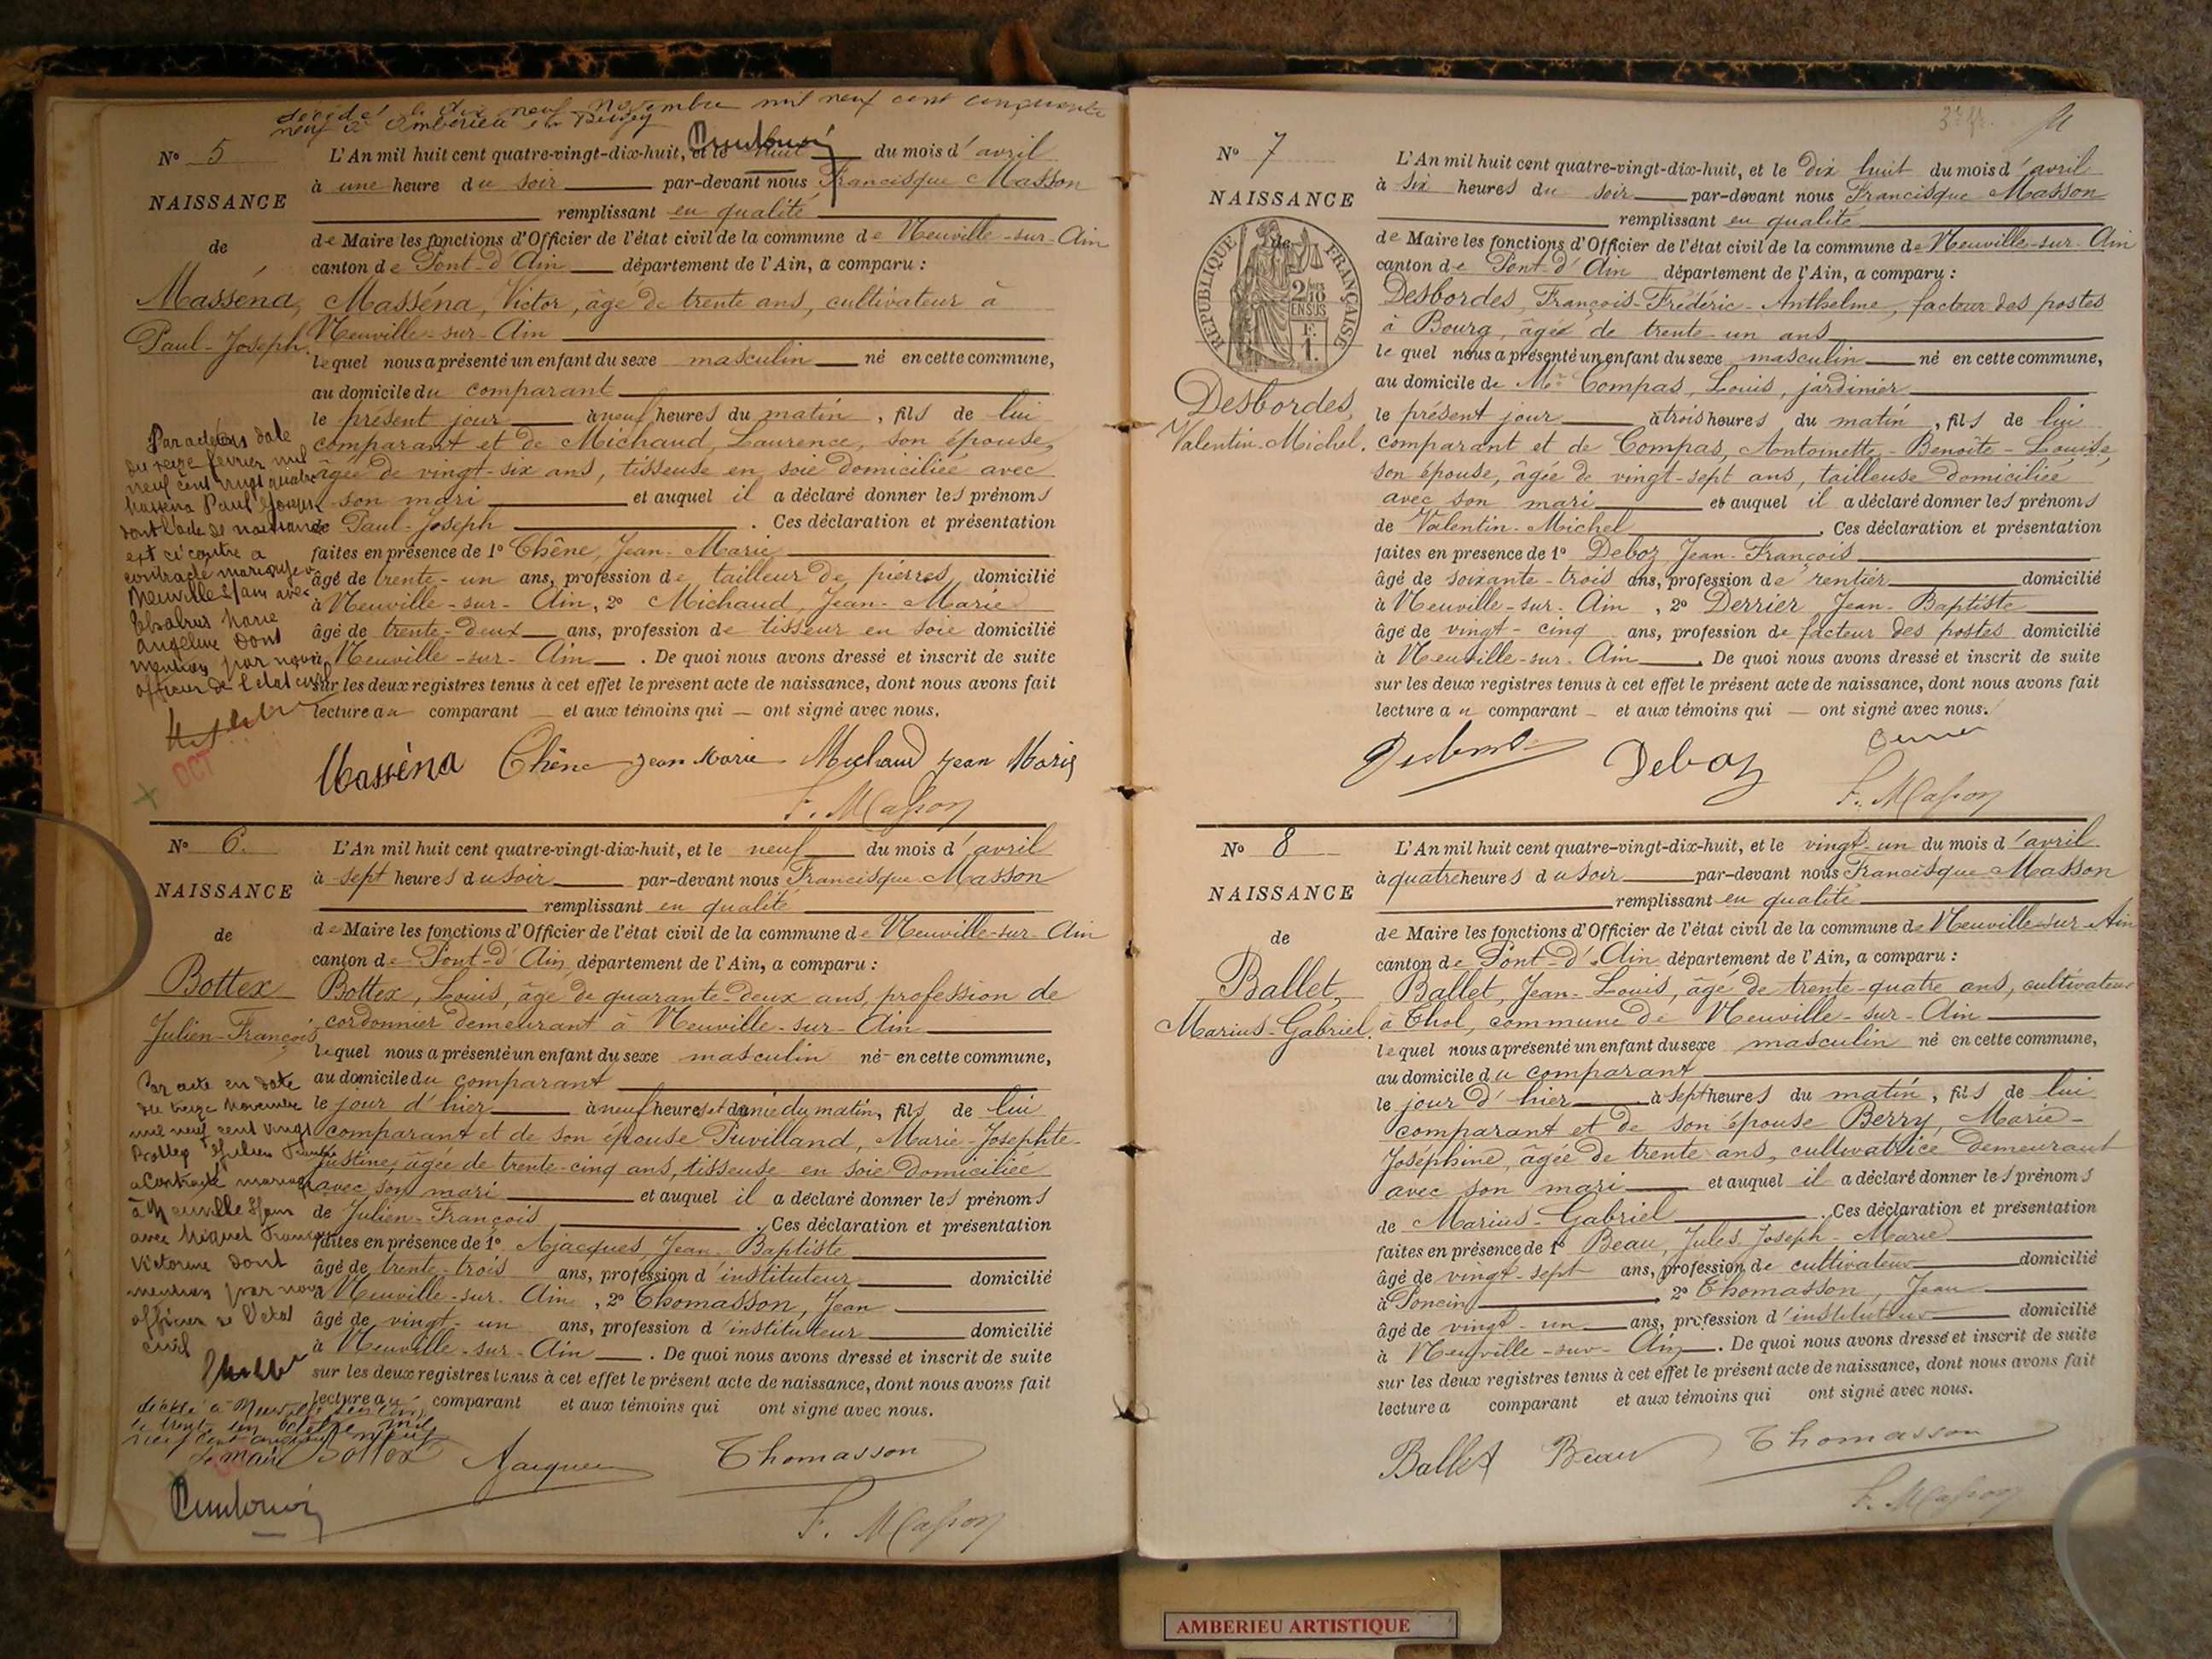 décédé le dix neuf novembre mil neuf cent cinquante
neuf à Ambérieu en Bugey
N° 5
NAISSANCE
de
Masséna,
Paul-Joseph.
L'An mil huit cent quatre-vingt-dix-huit, et le huit du mois d'avril
à une heure du soir par-devant nous Francisque Masson
remplissant en qualité
de Maire les fonctions d'Officier de l'état civil de la commune de Neuville-sur-Ain
canton de Pont-d'Ain département de l'Ain, a comparu :
Masséna, Victor, âgé de trente ans, cultivateur à
Neuville-sur-Ain
lequel nous a présenté un enfant du sexe masculin né en cette commune,
au domicile du comparant
le présent jour à neuf heures du matin, fils de lui
comparant et de Michaud, Laurence, son épouse,
âgée de vingt-six ans, tisseuse en soie domiciliée avec
son mari et auquel il a déclaré donner les prénoms
de Paul-Joseph. Ces déclaration et présentation
faites en présence de 1° Chêne, Jean-Marie
âgé de trente-un ans, profession de tailleur de pierres domicilié
à Neuville-sur-Ain, 2° Michaud, Jean-Marie
âgé de trente-deux ans, profession de tisseur en soie domicilié
à Neuville-sur-Ain. De quoi nous avons dressé et inscrit de suite
sur les deux registres tenus à cet effet le présent acte de naissance, dont nous avons fait
lecture au comparant et aux témoins qui ont signé avec nous.
Par acte en date
du seize février mil
neuf cent vingt quatre
Masséna Paul Joseph
dont l'acte de naissance
est ci contre a
contracté mariage à
Neuville s/ain avec
Marie
Angeline Dont
mention par nous
officier de l'état civil
OCT
Masséna Chêne Jean Marie Michaud Jean Marie
F. Masson
N° 6.
NAISSANCE
de
Bottex
Julien-François
L'An mil huit cent quatre-vingt-dix-huit, et le neuf du mois d'avril
à sept heures du soir par-devant nous Francisque Masson
remplissant en qualité
de Maire les fonctions d'Officier de l'état civil de la commune de Neuville-sur-Ain
canton de Pont-d'Ain département de l'Ain, a comparu :
Bottex, Louis, âgé de quarante-deux ans, profession de
cordonnier demeurant à Neuville-sur-Ain
lequel nous a présenté un enfant du sexe masculin né en cette commune,
au domicile du comparant
le jour d'hier à neuf heures et demie du matin, fils de lui
comparant et de son épouse Puvilland, Marie-Josephte-
Justine, âgée de trente-cinq ans, tisseuse en soie domiciliée
avec son mari et auquel il a déclaré donner les prénoms
de Julien-François. Ces déclaration et présentation
faites en présence de 1° Ajacques, Jean-Baptiste
âgé de trente-trois ans, profession d'instituteur domicilié
à Neuville-sur-Ain, 2° Thomasson, Jean
âgé de vingt-un ans, profession d'instituteur domicilié
à Neuville-sur-Ain. De quoi nous avons dressé et inscrit de suite
sur les deux registres tenus à cet effet le présent acte de naissance, dont nous avons fait
lecture au comparant et aux témoins qui ont signé avec nous.
Par acte en date
du treize Novembre
mil neuf cent vingt
Bottex Julien François
a contracté mariage
à Neuville s/ain
avec Miguet
Victorine dont
mention par nous
officier de l'état
civil
décédé à Neuville sur Ain
le trente un octobre mil
neuf cent cinquante neuf
Le maire
Bottex Ajacques Thomasson
F. Masson
N° 7
NAISSANCE
de
RÉPUBLIQUE FRANÇAISE
2/10 EN SUS
Desbordes,
Valentin-Michel.
L'An mil huit cent quatre-vingt-dix-huit, et le dix huit du mois d'avril
à six heures du soir par-devant nous Francisque Masson
remplissant en qualité
de Maire les fonctions d'Officier de l'état civil de la commune de Neuville-sur-Ain
canton de Pont-d'Ain département de l'Ain, a comparu :
Desbordes, François-Frédéric-Anthelme, facteur des postes
à Bourg, âgé de trente-un ans
lequel nous a présenté un enfant du sexe masculin né en cette commune,
au domicile de Mr Compas, Louis, jardinier
le présent jour à trois heures du matin, fils de lui
comparant et de Compas, Antoinette-Benoîte-Louise,
son épouse, âgée de vingt-sept ans, tailleuse domiciliée
avec son mari et auquel il a déclaré donner les prénoms
de Valentin-Michel. Ces déclaration et présentation
faites en présence de 1° Deboz, Jean-François
âgé de soixante-trois ans, profession de rentier domicilié
à Neuville-sur-Ain, 2° Derrier, Jean-Baptiste
âgé de vingt-cinq ans, profession de facteur des postes domicilié
à Neuville-sur-Ain. De quoi nous avons dressé et inscrit de suite
sur les deux registres tenus à cet effet le présent acte de naissance, dont nous avons fait
lecture au comparant et aux témoins qui ont signé avec nous.
Deboz
F. Masson
N° 8
NAISSANCE
de
Ballet,
Marius-Gabriel.
L'An mil huit cent quatre-vingt-dix-huit, et le vingt-un du mois d'avril
à quatre heures du soir par-devant nous Francisque Masson
remplissant en qualité
de Maire les fonctions d'Officier de l'état civil de la commune de Neuville-sur-Ain
canton de Pont-d'Ain département de l'Ain, a comparu :
Ballet, Jean-Louis, âgé de trente-quatre ans, cultivateur
à Thol, commune de Neuville-sur-Ain
lequel nous a présenté un enfant du sexe masculin né en cette commune,
au domicile du comparant
le jour d'hier à sept heures du matin, fils de lui
comparant et de son épouse Berry, Marie-
Joséphine, âgée de trente ans, cultivatrice demeurant
avec son mari et auquel il a déclaré donner les prénoms
de Marius-Gabriel. Ces déclaration et présentation
faites en présence de 1° Beau, Jules-Joseph-Marie
âgé de vingt-sept ans, profession de cultivateur domicilié
à Poncin 2° Thomasson, Jean
âgé de vingt-un ans, profession d'instituteur domicilié
à Neuville-sur-Ain. De quoi nous avons dressé et inscrit de suite
sur les deux registres tenus à cet effet le présent acte de naissance, dont nous avons fait
lecture a comparant et aux témoins qui ont signé avec nous.
Ballet Beau Thomasson
F. Masson
AMBERIEU ARTISTIQUE